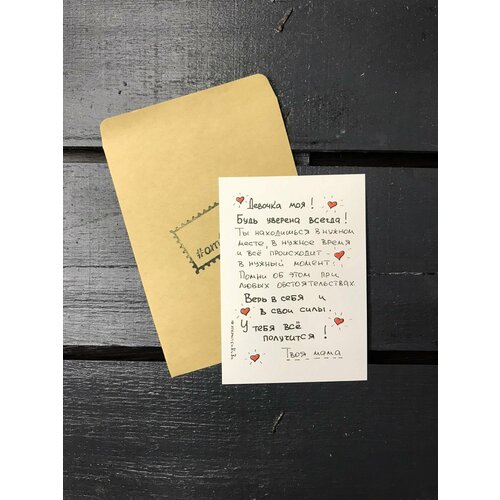 Девочка моя!
Будь уверена всегда!
Ты находишься в нужном
месте, в нужное время
и всё происходит -
в нужный момент.
Помни об этом при
любых обстоятельствах
Верь в себя и
в свои силы.
У тебя всё
получится!
Твоя мама